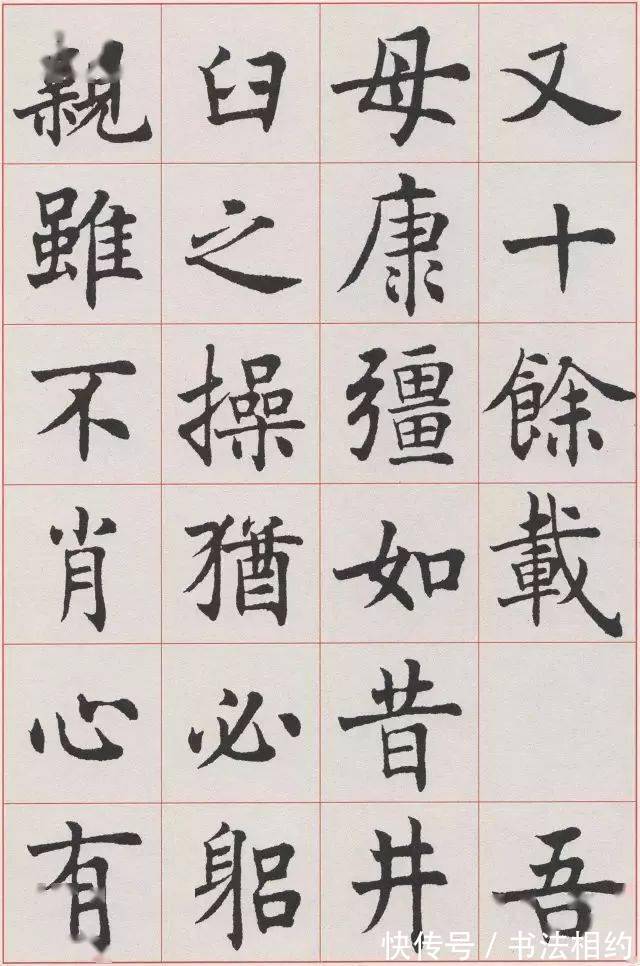 又十餘載 吾
母康彊如昔井
臼之操猶必躬
親雖不肖心有
快传号 / 书法相约